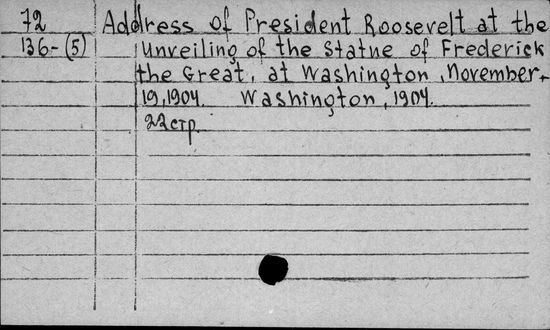 72 Address of President Roosevelt at the
136-(5) Unveiling of the Statue of Frederick
the Great, at Washington, November,
19, 1904. Washington, 1904.
22 стр.